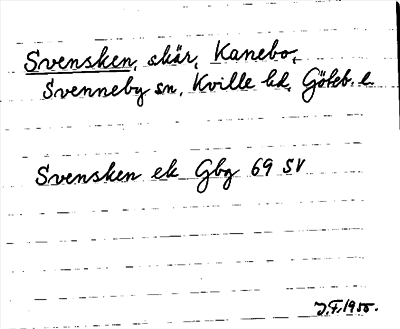 Svensken, skär, Kanebo,
Svenneby sn, Kville hd, Göteb. l.
Svensken ek Gbg 69 SV
J.F. 1955.